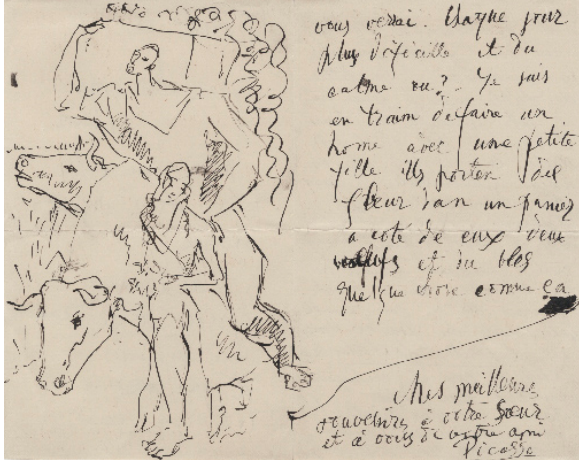 vous verrai. Chaque jour
plus dificille et du
calme ou? Je suis
en train de faire un
home avec une petite
fille ills porten des
fleur dan un panier
a coté de eux deux
et du bles
quelque chose comme ça
Mes meilleurs
souvenirs à votre Soeur
et à vous de votre ami
Picasso